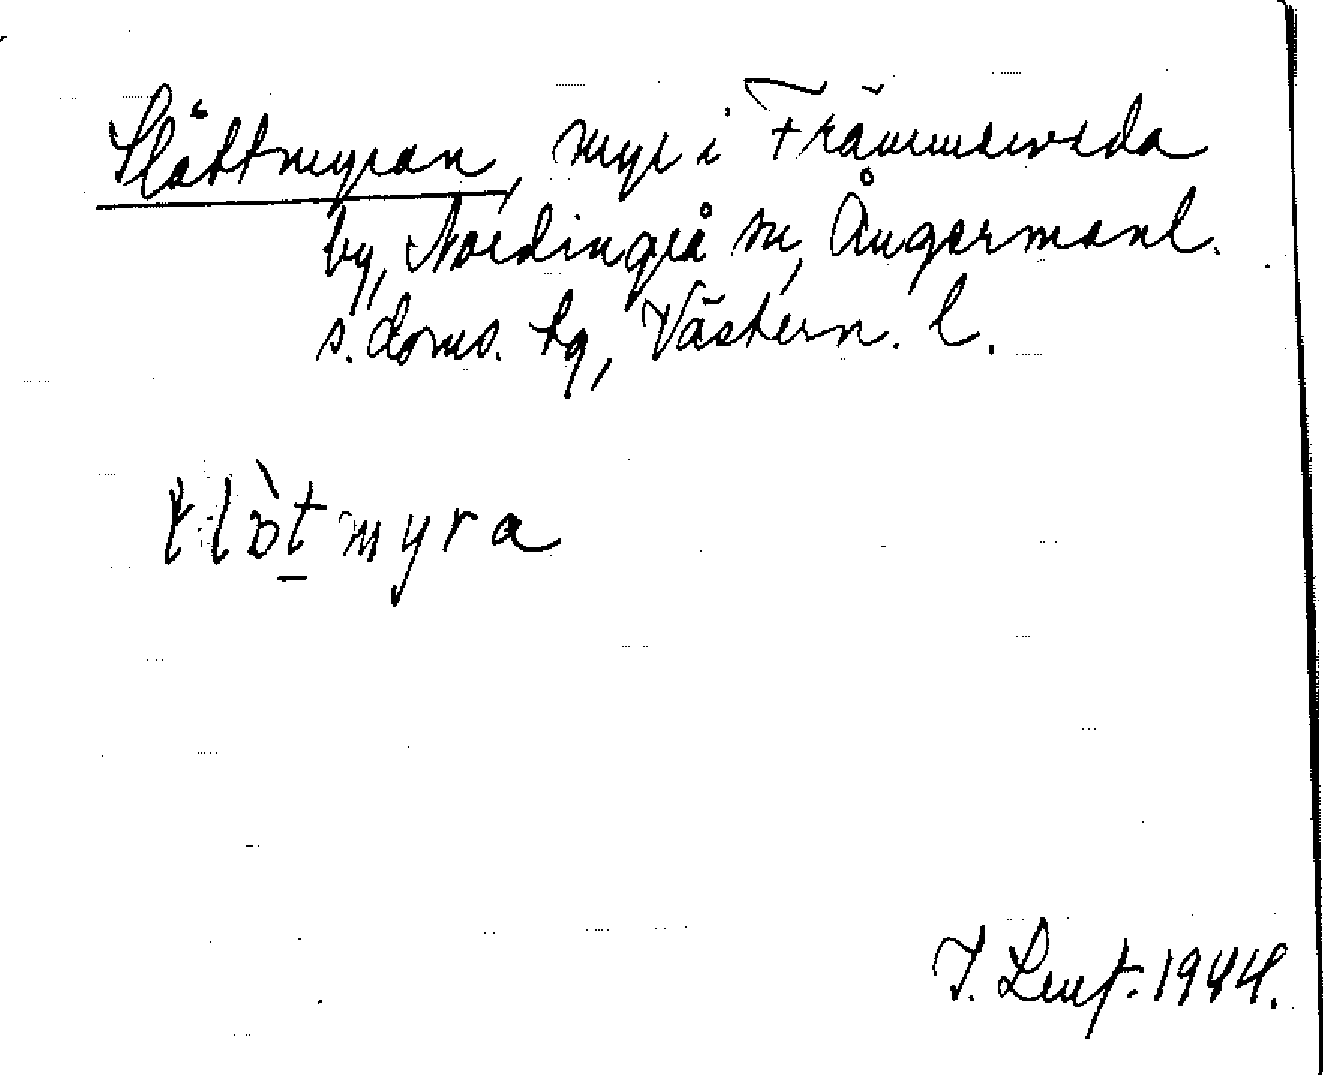 Slåttmyran, myr i Främmerveda
by, Nordingrå sn, Ångermanl.
s. doms. tg, Västern. l.
myra
1944.